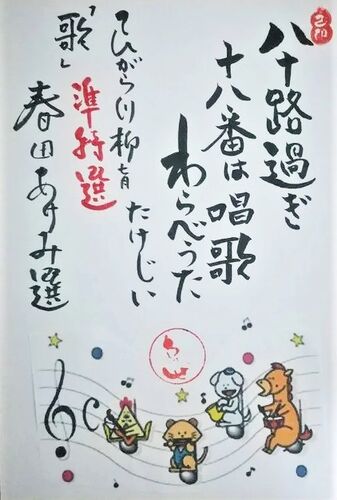 八十路過ぎ
十八番は唱歌
わらべうた
てひがら川柳七月 たけじい
準特選
「歌」
春田あけみ選